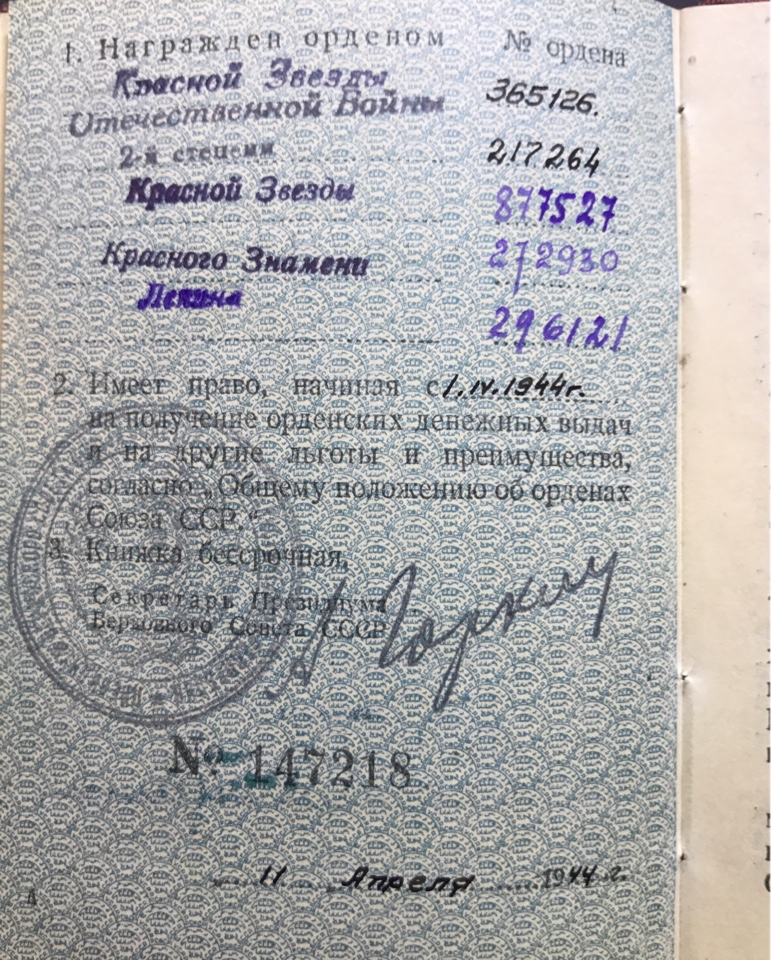 1. Награжден орденом № ордена
Красной Звезды 365126.
Отечественной Войны
2-й степени 217264
Красной Звезды 877527
Красного Знамени 272930
Ленина 296121
2. Имеет право, начиная с 1.IV.1944г.
на получение орденских денежных выдач
и на другие льготы и преимущества,
согласно „Общему положению об орденах
Союза ССР.“
3. Книжка бессрочная.
Секретарь Президиума
Верховного Совета СССР
А Горкин
№ 147218
11 Апреля 1944 г.
4